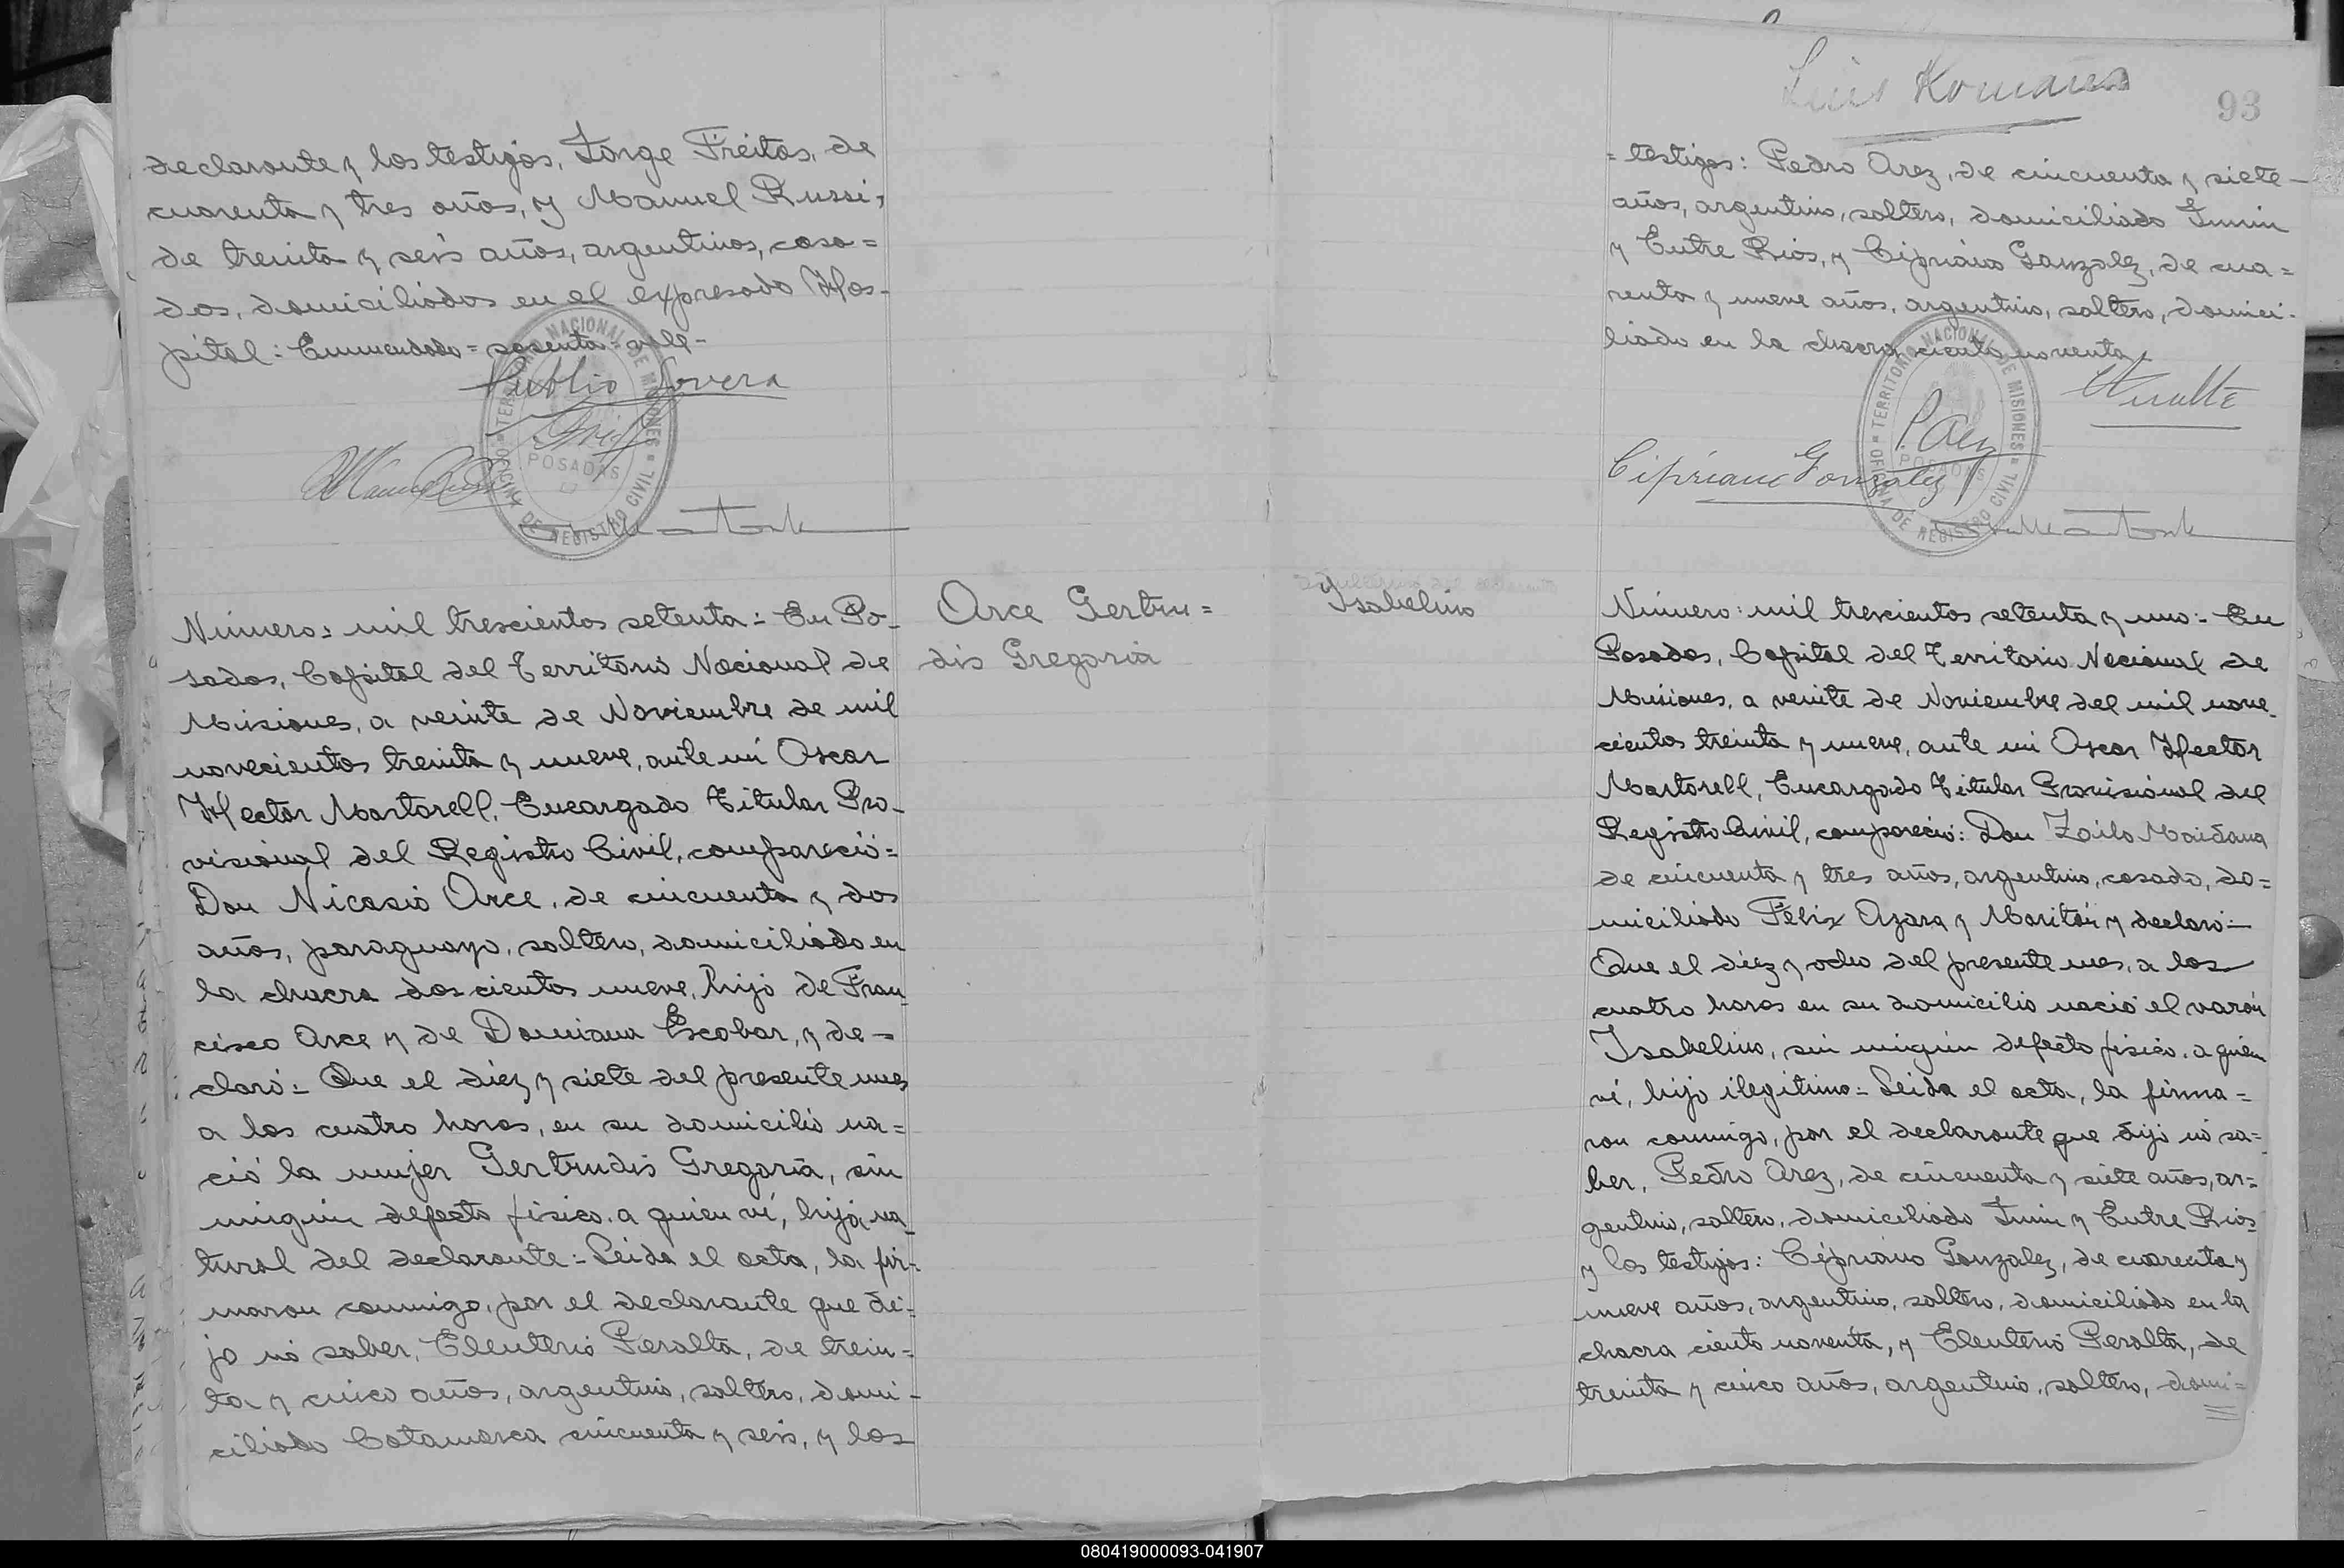 declarante y los testigos, Jorge Freitas, de
cuarenta y tres años, y Manuel Russi,
de treinta y seis años, argentinos, casa=
dos, domiciliados en el expresado Hos-
pital: Enmendado= sesenta= vale-
Publio Lovera
TERRITORIO NACIONAL DE MISIONES
POSADAS
OFICINA DE REGISTRO CIVIL
Número: mil trescientos setenta: En Po-
sadas, Capital del Territorio Nacional de
Misiones, a veinte de Noviembre de mil
novecientos treinta y nueve, ante mí Oscar
Hector Martorell, Encargado Titular Pro-
visional del Registro Civil, compareció=
Don Nicasio Arce, de cincuenta y dos
años, paraguayo, soltero, domiciliado en
la chacra doscientos nueve, hijo de Fran
cisco Arce y de Damiana Escobar, y de-
claró= Que el diez y siete del presente mes
a las cuatro horas, en su domicilio na=
ció la mujer Gertrudis Gregoria, sin
ningún defecto fisico. a quien ví, hija na-
tural del declarante= Leida el acta, la fir-
maron conmigo, por el declarante que di-
jo no saber, Eleuterio Peralta, de trein=
ta y cinco años, argentino, soltero, domi-
ciliado Catamarca cincuenta y seis, y los
Arce Gertru=
dis Gregoria
Luis Romaña
93
=testigos: Pedro Arez, de cincuenta y siete-
años, argentino, soltero, domiciliado Junin
y Entre Rios, y Cipriano Gonzalez, de cua=
renta y nueve años, argentino, soltero, domici-
liado en la chacra ciento noventa-
PArez
Cipriano Gonzalez
TERRITORIO NACIONAL DE MISIONES
POSADAS
OFICINA DE REGISTRO CIVIL
Ysabelino
Número: mil trescientos setenta y uno:- En
Posadas, Capital del Territorio Nacional de
Misiones, a veinte de Noviembre del mil nove-
cientos treinta y nueve, ante mi Oscar Hector
Martorell, Encargado Titular Provisional del
Registro Civil, compareció: Don Zoilo Maidana
de cincuenta y tres años, argentino, casado, do=
miciliado Félix Azara y Maritán y declaró-
Que el diez y ocho del presente mes, a las
cuatro horas en su domicilio nació el varón
Ysabelino, sin ningún defecto fisico. a quien
ví, hijo ilegítimo= Leida el acta, la firma=
ron conmigo, por el declarante que dijo no sa=
ber, Pedro Arez, de cincuenta y siete años, ar=
gentino, soltero, domiciliado Junin y Entre Rios
y los testigos: Cipriano Gonzalez, de cuarenta y
nueve años, argentino, soltero, domiciliado en la
chacra ciento noventa, y Eleuterio Peralta, de
treinta y cinco años, argentino, soltero, domi=
080419000093-041907